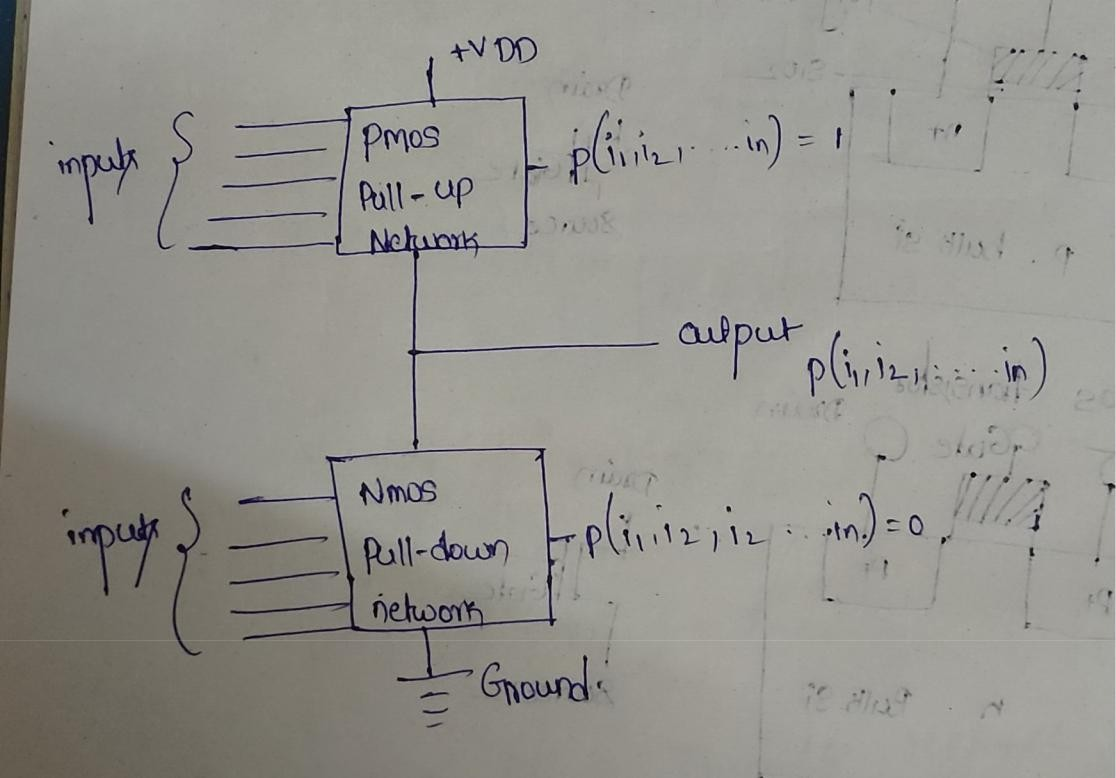 +VDD
inputs
Pmos
Pull-up
Network
p(i1,i2,.....in) = 1
output
p(i1,i2,.....in)
inputs
Nmos
Pull-down
network
p(i1,i2,i2...in.)=0
Ground.